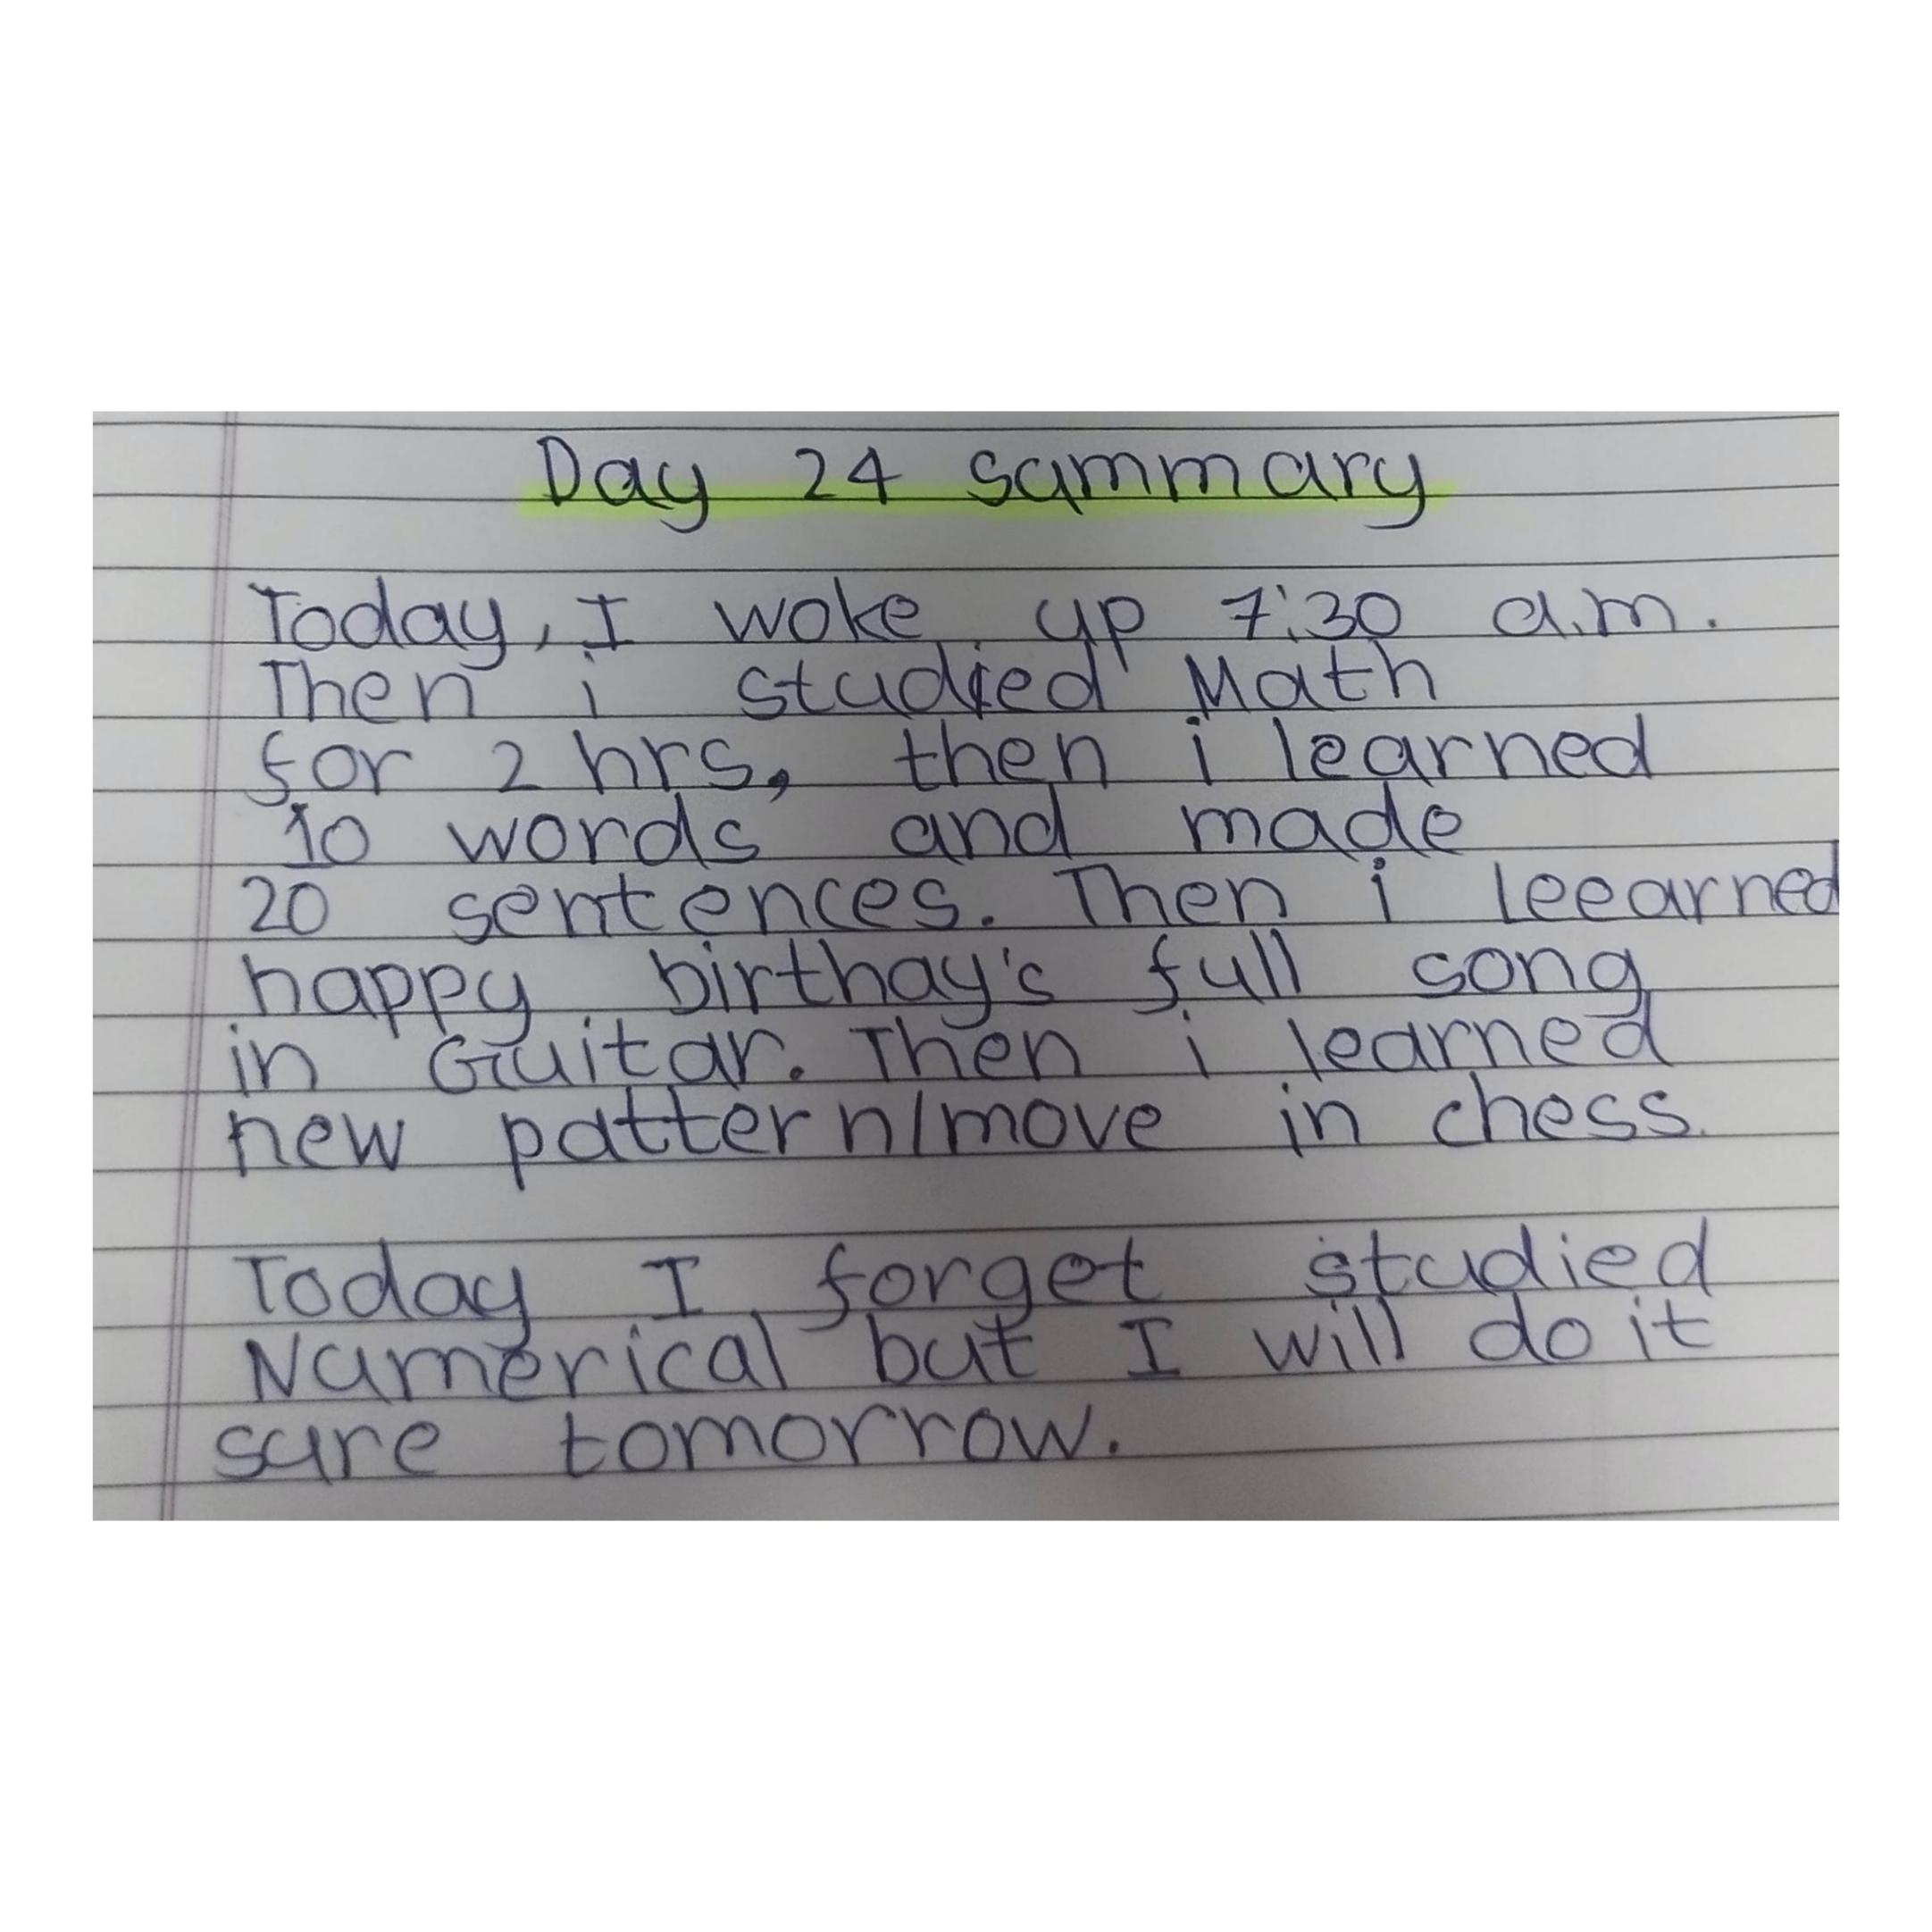 Day 24 summary
Today, I woke up 7:30 a.m.
Then i studied Math
for 2 hrs, then i learned
10 words and made
20 sentences. Then i leearned
happy birthay's full song
in Guitar. Then i learned
new pattern/move in chess.
Today I forget studied
Numerical but I will do it
sure tomorrow.